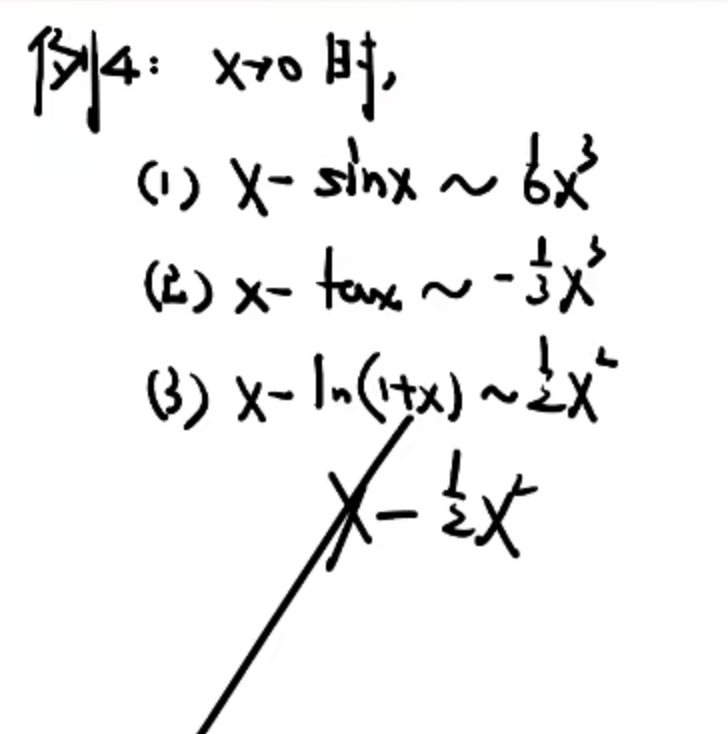 例4: x→0 时,
(1) x - sinx ~ 1/6 x³
(2) x - tanx ~ -1/3 x³
(3) x - ln(1+x) ~ 1/2 x²
x - 1/2 x²